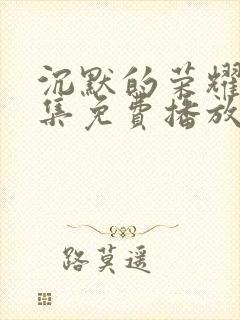 沉默的荣耀
集免費播放
路莫遥